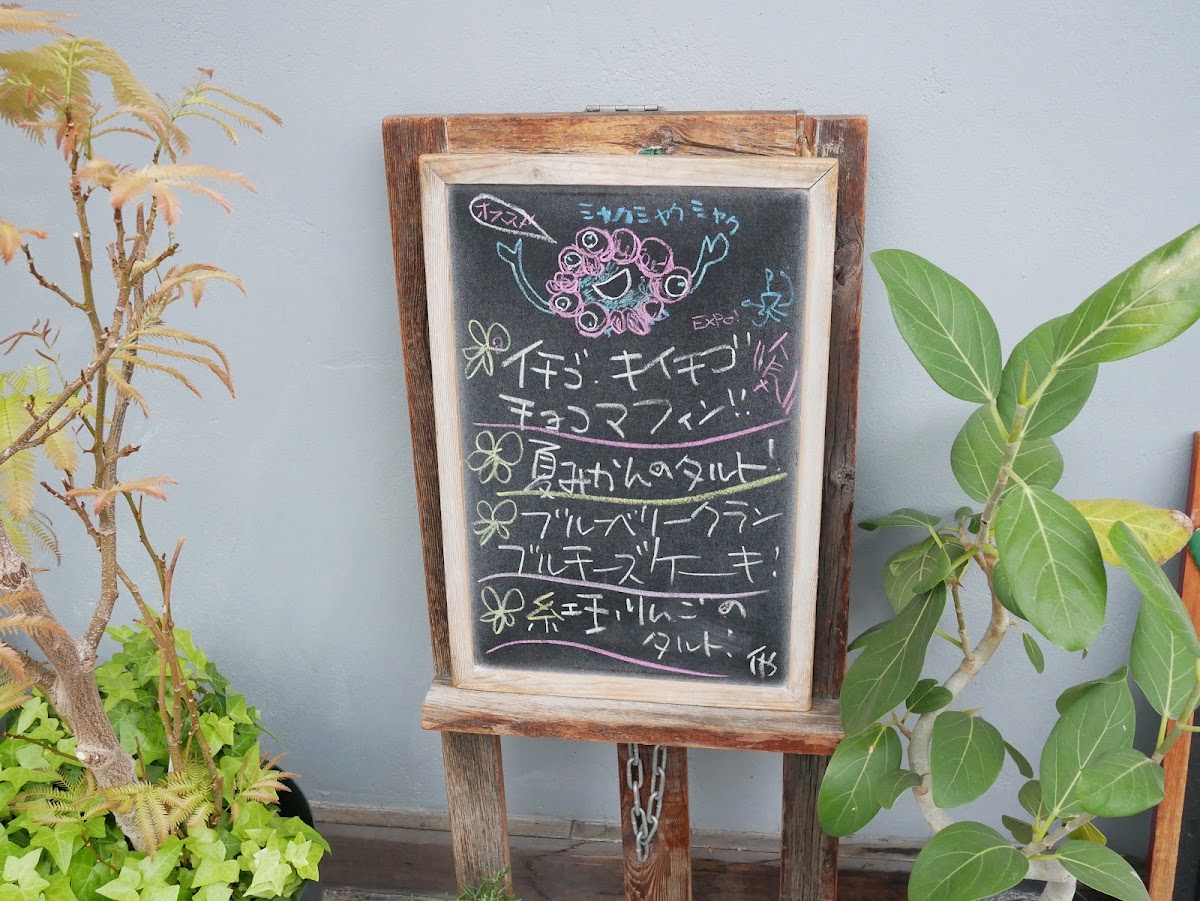 オススメ
ミャクミャクミャク
EXPO!
イチゴ・キイチゴ
チョコマフィン!!
夏みかんのタルト!
ブルーベリークラン
ブルチーズケーキ!
紅玉りんごの
タルト!